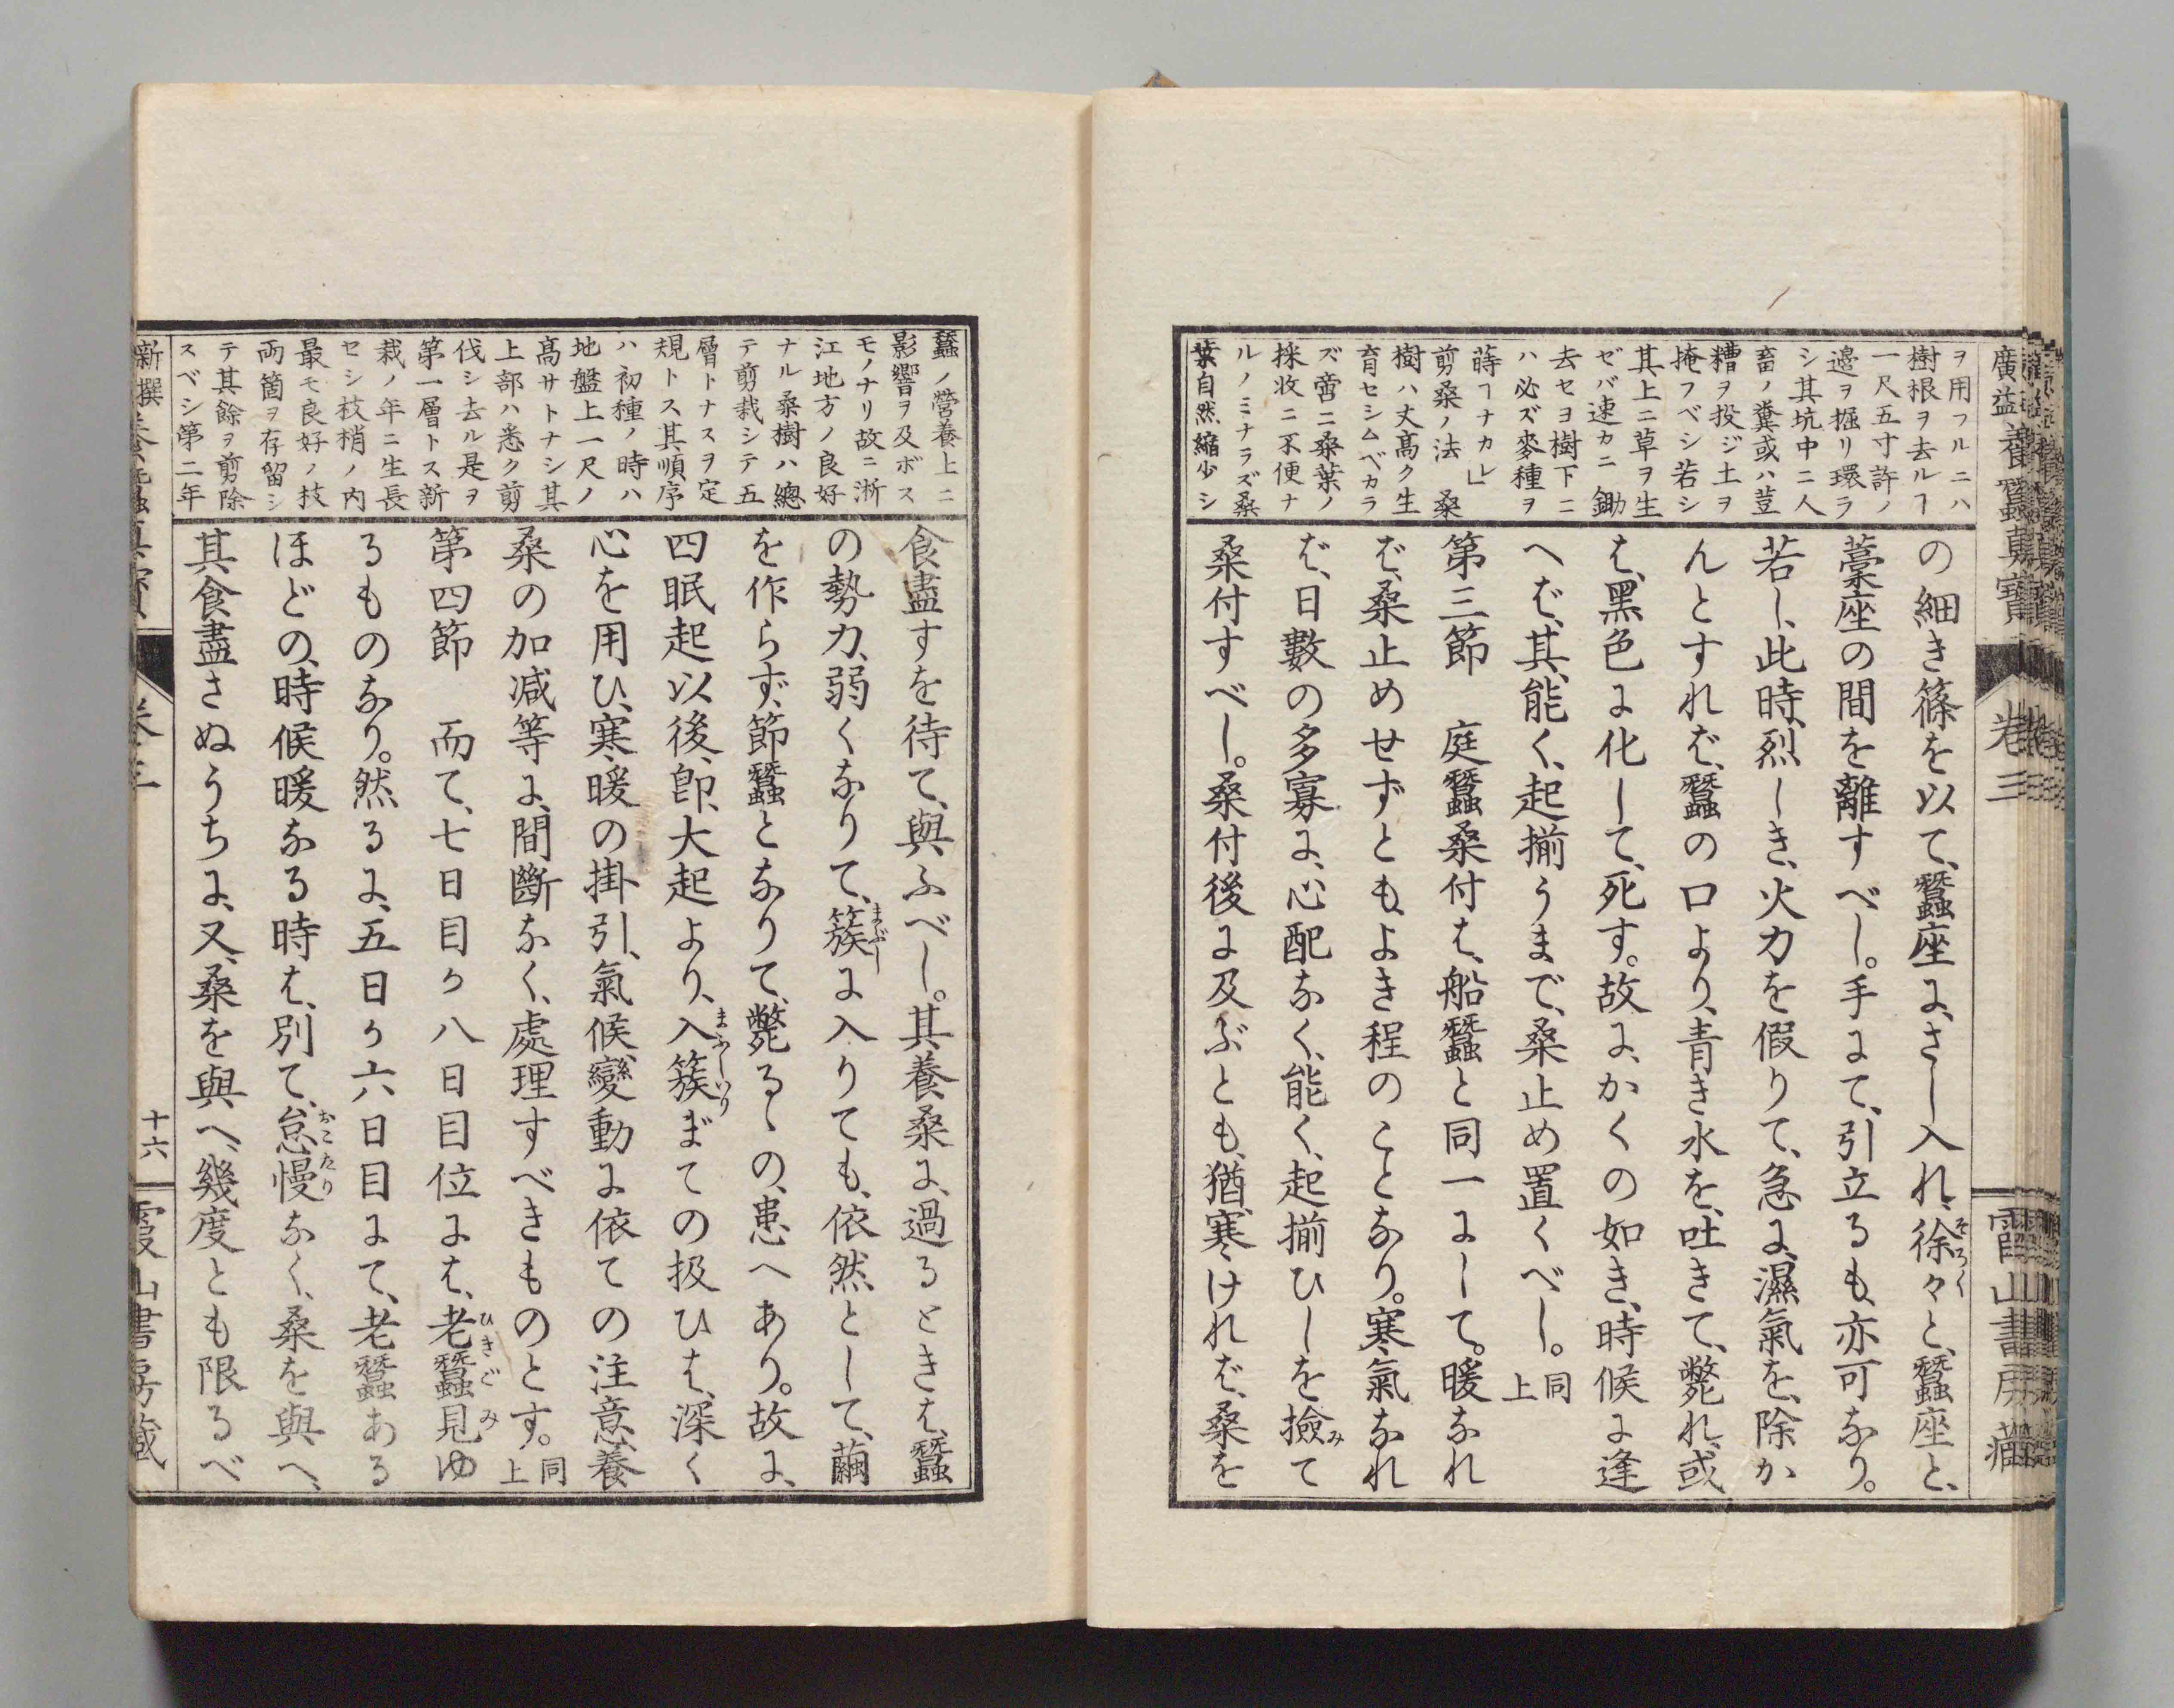 廣益養蠶眞寶
卷三
霞山書房藏
ヲ用フルニハ
樹根ヲ去ルヿ
一尺五寸許ノ
邊ヲ掘リ環ラ
シ其坑中ニ人
畜ノ糞或ハ荳
糟ヲ投ジ土ヲ
掩フベシ若シ
其上ニ草ヲ生
ゼバ速カニ鋤
去セヨ樹下ニ
ハ必ズ麥種ヲ
蒔ヿナカレ」
剪桑ノ法 桑
樹ハ丈高ク生
育セシムベカラ
ズ啻ニ桑葉ノ
採收ニ不便ナ
ルノミナラズ桑
葉自然縮少シ
の細き篠を以て、蠶座に、さし入れ、徐々と、蠶座と、
そろ〳〵
藁座の間を離すべし。手にて、引立るも、亦可なり。
若し、此時、烈しき、火力を假りて、急に、濕氣を、除か
んとすれば、蠶の口より、青き水を、吐きて、斃れ、或
は、黑色に化して、死す。故に、かくの如き、時候に逢
へば、其、能く、起揃うまで、桑止め置くべし。同上
第三節 庭蠶桑付は、船蠶と同一にして。暖なれ
ば、桑止めせずとも、よき程のことなり。寒氣なれ
ば、日數の多寡に、心配なく、能く、起揃ひしを撿て
み
桑付すべし。桑付後に及ぶとも、猶、寒ければ、桑を
蠶ノ營養上ニ
影響ヲ及ボス
モノナリ故ニ淅
江地方ノ良好
ナル桑樹ハ總
テ剪栽シテ五
層トナスヲ定
規トス其順序
ハ初種ノ時ハ
地盤上一尺ノ
高サトナシ其
上部ハ悉ク剪
伐シ去ル是ヲ
第一層トス新
栽ノ年ニ生長
セシ枝梢ノ内
最モ良好ノ枝
両箇ヲ存留シ
テ其餘ヲ剪除
スベシ第二年
食盡すを待て、與ふべし。其養桑に、過るときは、蠶
の勢力、弱くなりて、簇に入りても、依然として、繭
まぶし
を作らず、節蠶となりて、斃るゝの、患へあり。故に、
四眠起以後、卽、大起より、入簇までの扱ひは、深く
まぶしいり
心を用ひ、寒暖の掛引、氣候、變動に依ての注意、養
桑の加減等に、間斷なく、處理すべきものとす。同上
第四節 而て、七日目か八日目位には、老蠶見ゆ
ひきごみ
るものなり。然るに、五日か六日目にて、老蠶ある
ほどの、時候暖なる時は、別て、怠慢なく、桑を與へ、
おこたり
其食盡さぬうちに、又、桑を與へ、幾度とも限るべ
新撰養蠶眞寶
卷三
十六
霞山書房藏